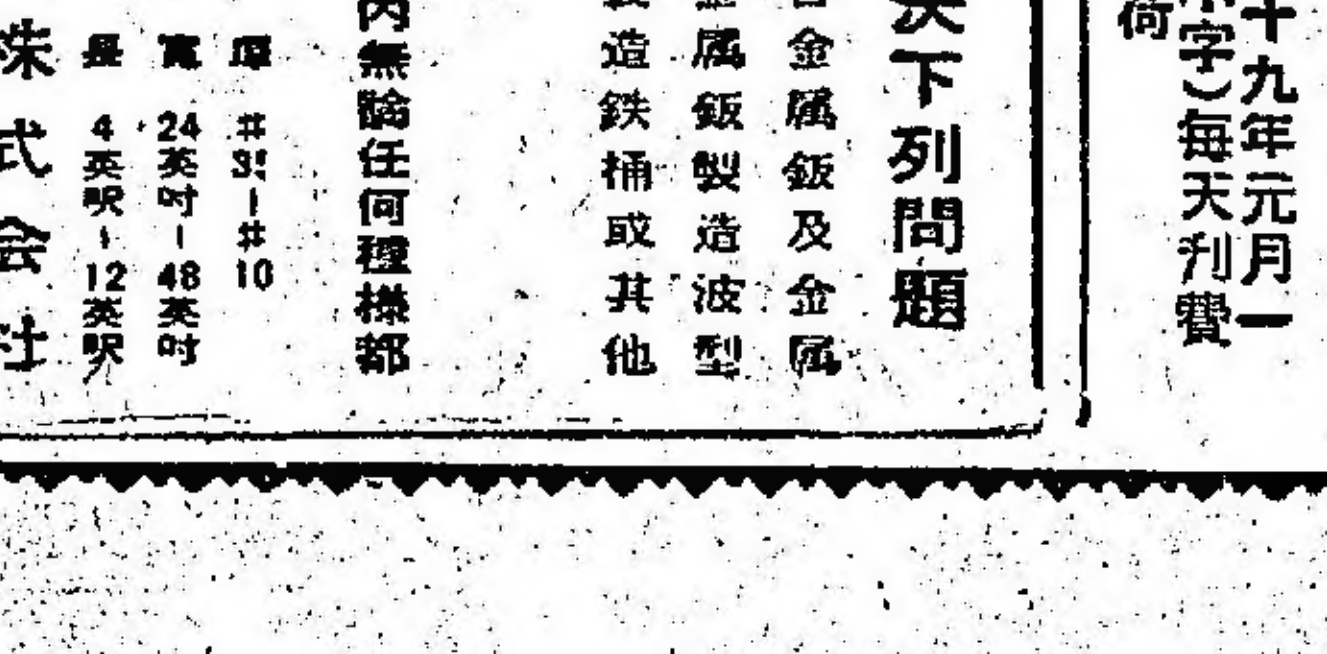 十九年元月一
字)每天刋費
荷
決下列問題
金属鈑及金属
属鈑製造波型
造鉄桶或其他
內無論任何種樣都
厚 #31-#10
寬 24英吋-48英吋
長 4英呎-12英呎
株式会社